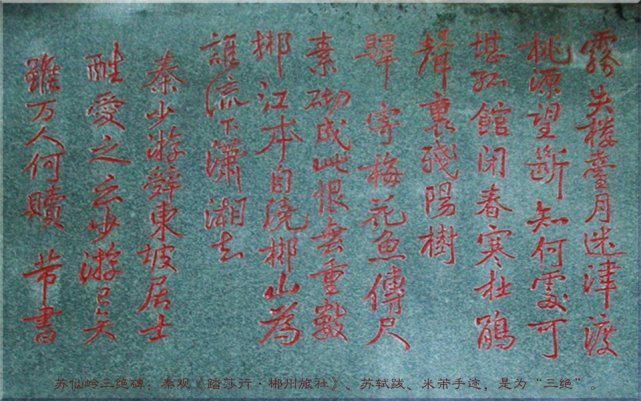 霧失楼臺月迷津渡
桃源望斷知何處可
堪孤館闭春寒杜鵑
聲裏残陽樹
驛寄梅花魚傳尺
素砌成此恨無重數
郴江本自繞郴山為
誰流下瀟湘去
秦少游辭東坡居士
酷愛之云少游已矣
雖万人何贖 芾書
苏仙岭三绝碑：秦观《踏莎行·郴州旅社》、苏轼跋、米芾手迹，是为“三绝”。